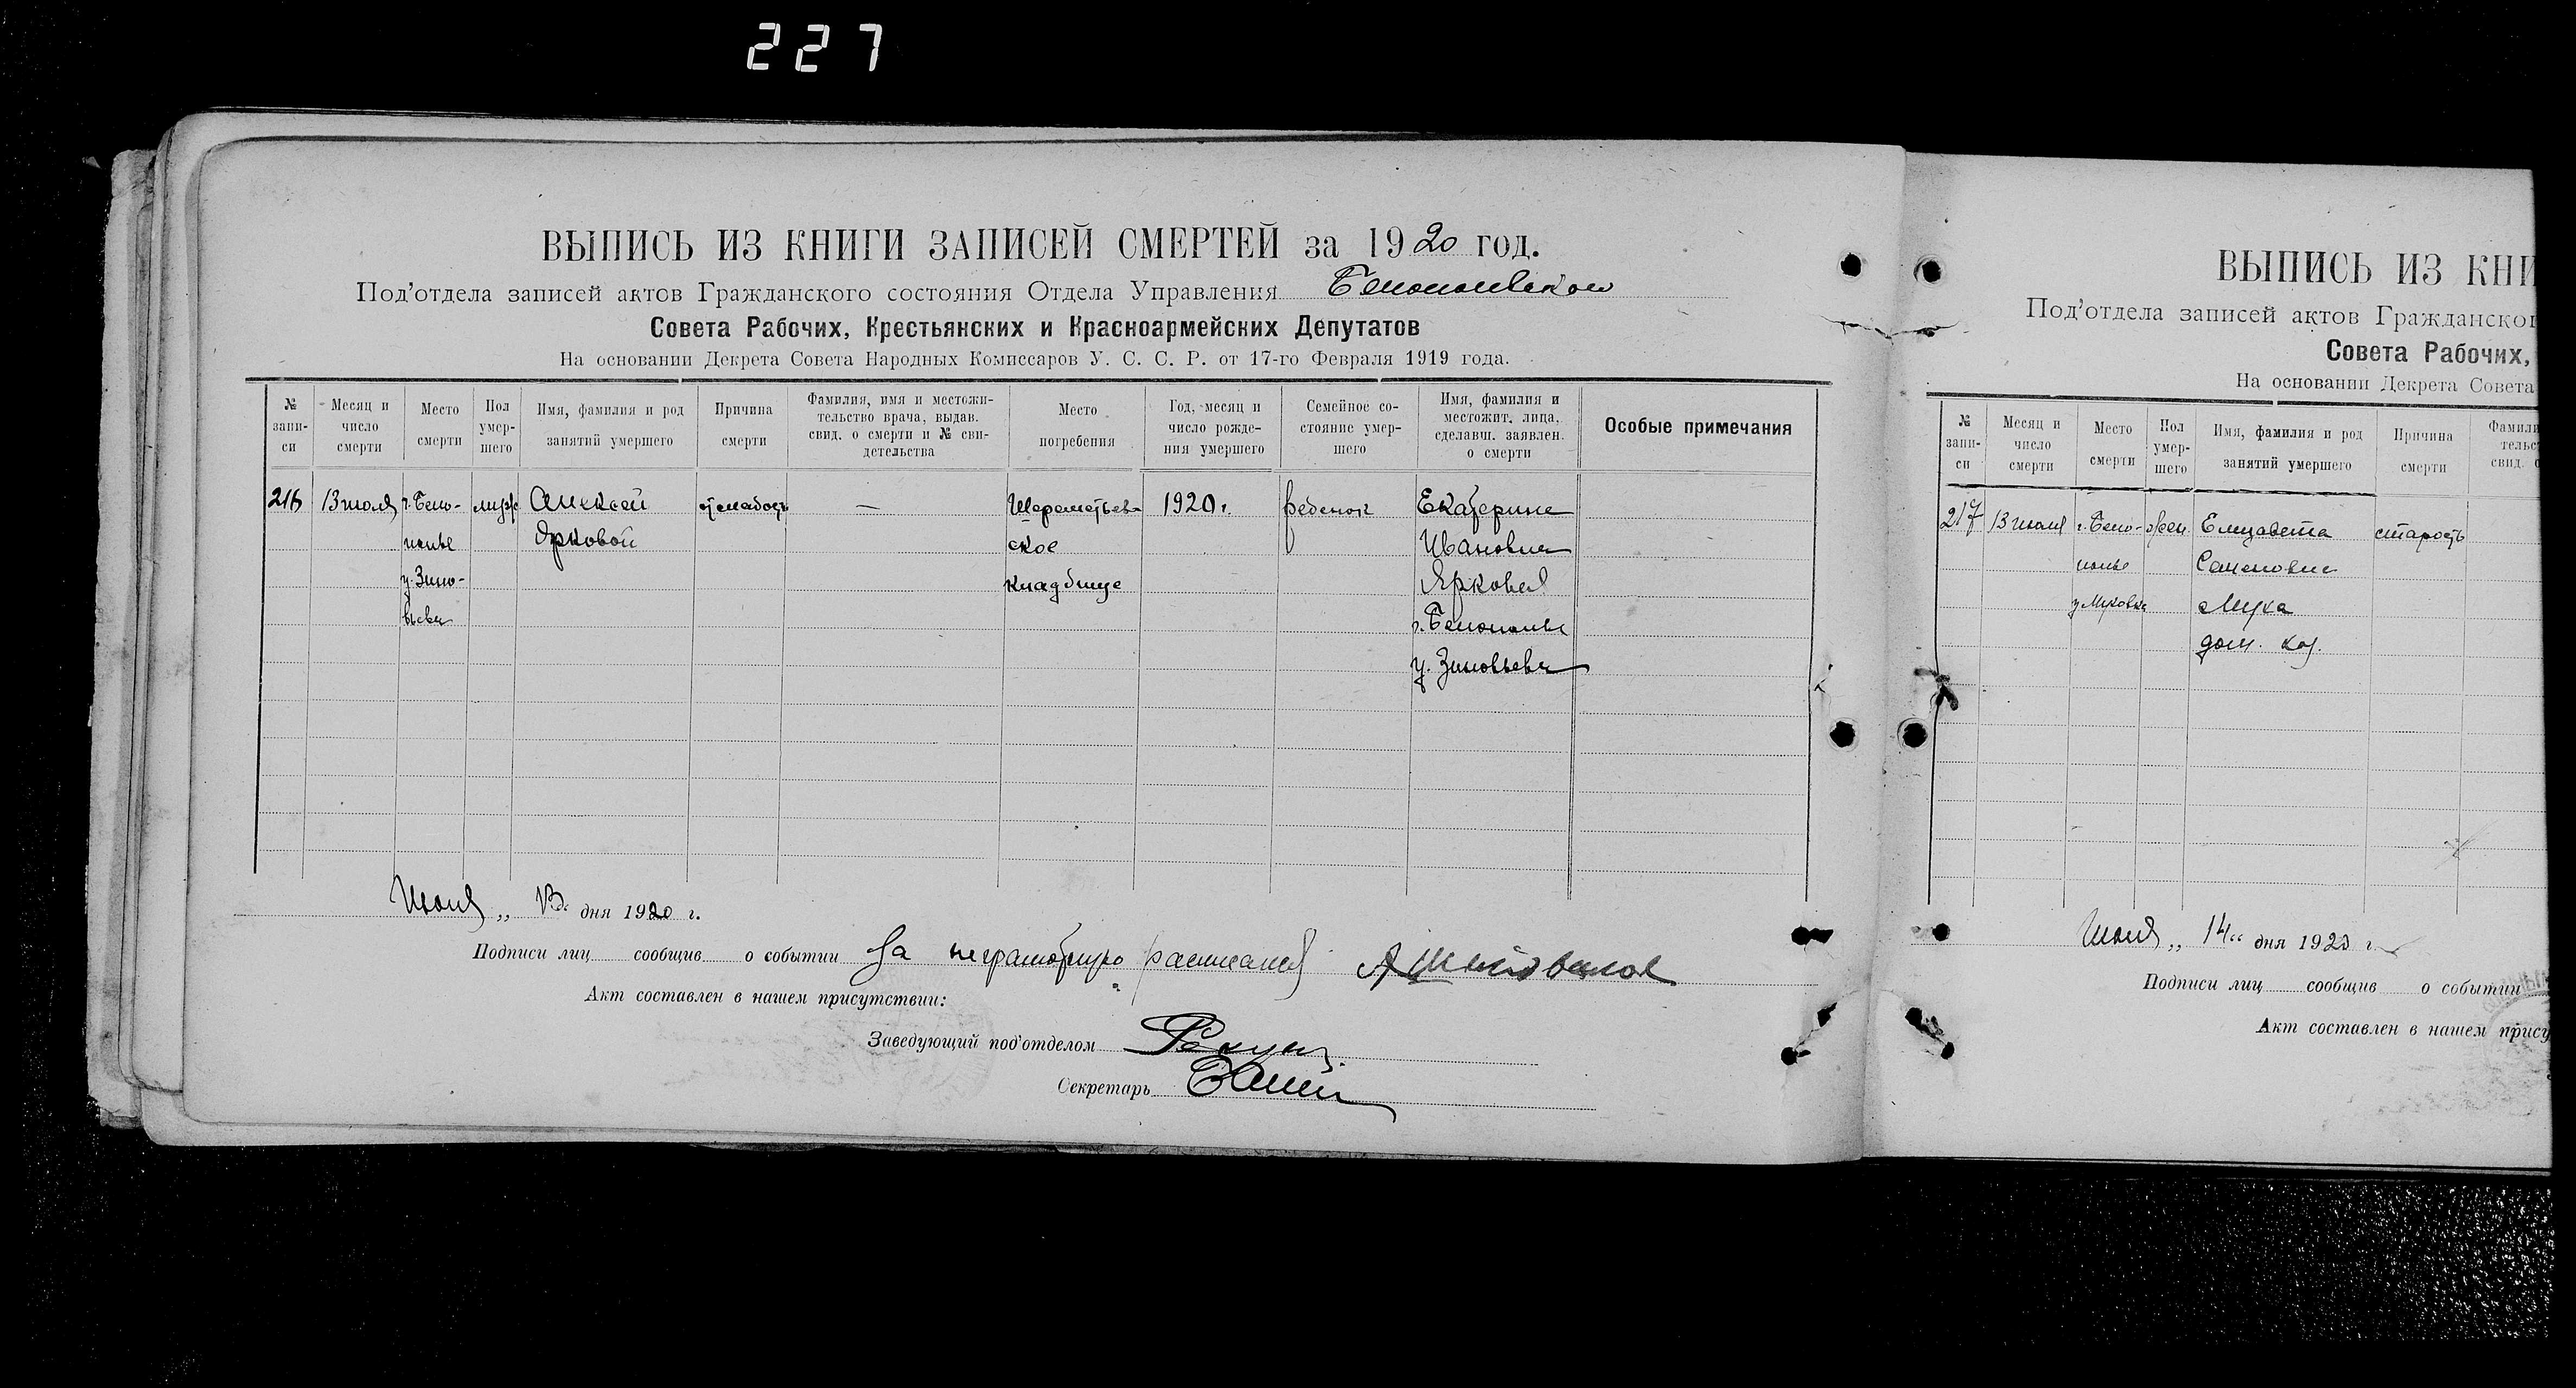 227
ВЫПИСЬ ИЗ КНИГИ ЗАПИСЕЙ СМЕРТЕЙ за 1920 год.
Под'отдела записей актов Гражданского состояния Отдела Управления Белопольском
Совета Рабочих, Крестьянских и Красноармейских Депутатов
На основании Декрета Совета Народных Комиссаров У. С. С. Р. от 17-го Февраля 1919 года.
№ запи-си
Месяц и число смерти
Место смерти
Пол умер-шего
Имя, фамилия и род занятий умершего
Причина смерти
Фамилия, имя и местожи-тельство врача, выдав. свид. о смерти и № сви-детельства
Место погребения
Год, месяц и число рожде-ния умершего
Семейное со-стояние умер-шего
Имя, фамилия и местожит. лица, сделавш. заявлен. о смерти
Особые примечания
216 13 июля г. Бело- муж Алексей слабость — Шереметьев- 1920 г. ребенок Екатерина
полье Ярковой ское Ивановна
у. Зино- кладбище Яркова
вьева г. Белополье
у. Зиновьева
Июля „ 13 " дня 1920 г.
Подписи лиц сообщив о событии За неграмотную расписался
Акт составлен в нашем присутствии:
Заведующий под'отделом
Секретарь
ВЫПИСЬ ИЗ КНИ
Под'отдела записей актов Гражданског
Совета Рабочих,
На основании Декрета Совета
№ запи-си
Месяц и число смерти
Место смерти
Пол умер-шего
Имя, фамилия и род занятий умершего
Причина смерти
Фамили тельс свид. о
217 13 июля г. Бело- жен. Елизавета старость
полье Семеновна
Муха
дом. хоз.
Июля „ 14 " дня 1920 г.
Подписи лиц сообщив о событии
Акт составлен в нашем прису